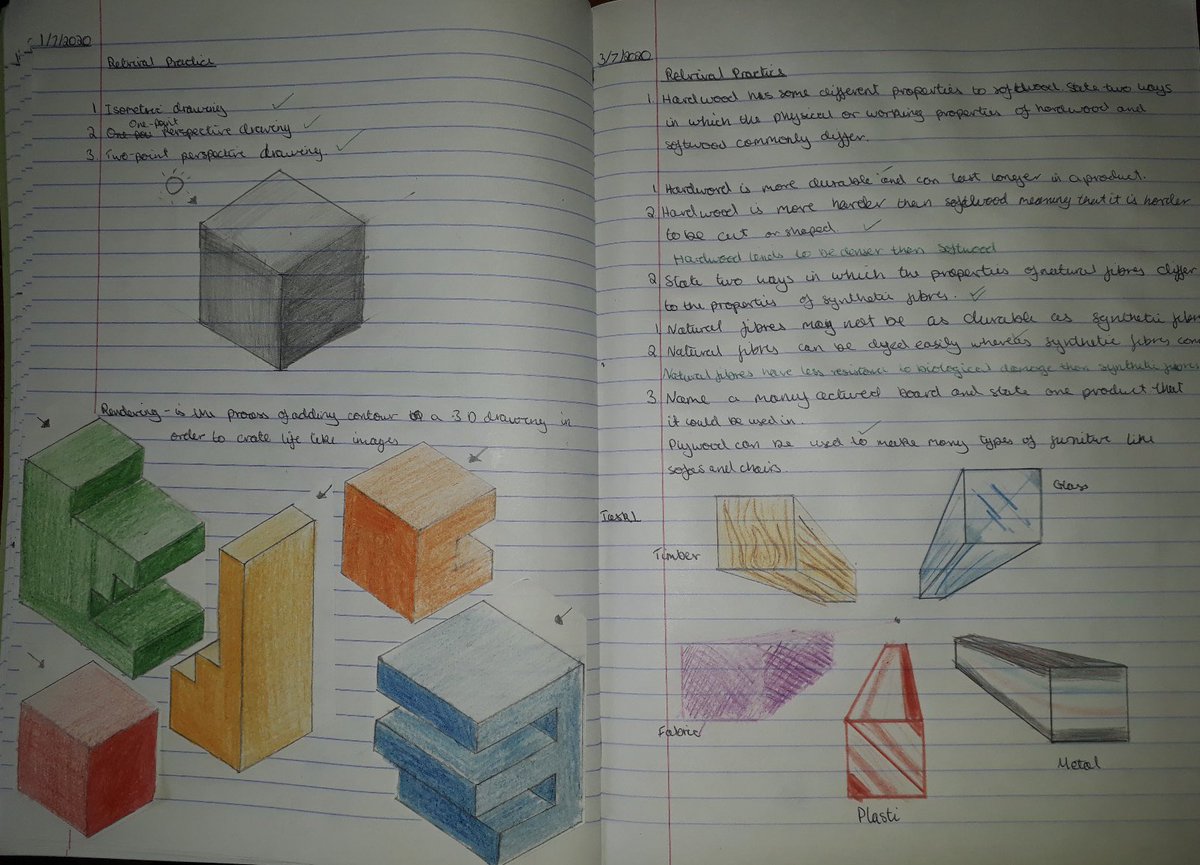 1/7/2020
Retrival Practice
1 Isometric drawing
One-point
2 One poi perspective drawing
3. Two point perspective drawing.
Rendering - is the process of adding contour to a 3D drawing in
order to crate life like images
3/7/2020
Retrival Practice
1. Hardwood has some different properties to softwood state two ways
in which the physical or working properties of hardwood and
softwood commonly differ.
1 Hardword is more durable and can last longer in a product.
2 Hardwood is more harder than softwood meaning that it is harder
to be cut or shaped.
Hardwood tends to be denser then softwood
2 State two ways in which the properties of natural fibres differ
to the properties of synthetic fibres.
1 Natural fibres may not be as durable as synthetic fibr
2 Natural fibres can be dyed easily whereas synthetic fibres can
Natural fibres have less resistance to biological damage then synthetic fibres
3. Name a manufactured board and state one product that
it could be used in.
Plywood can be used to make many types of funitive like
sofas and chairs.
Task 1
Timber
Glass
Fabric
Plasti
Metal